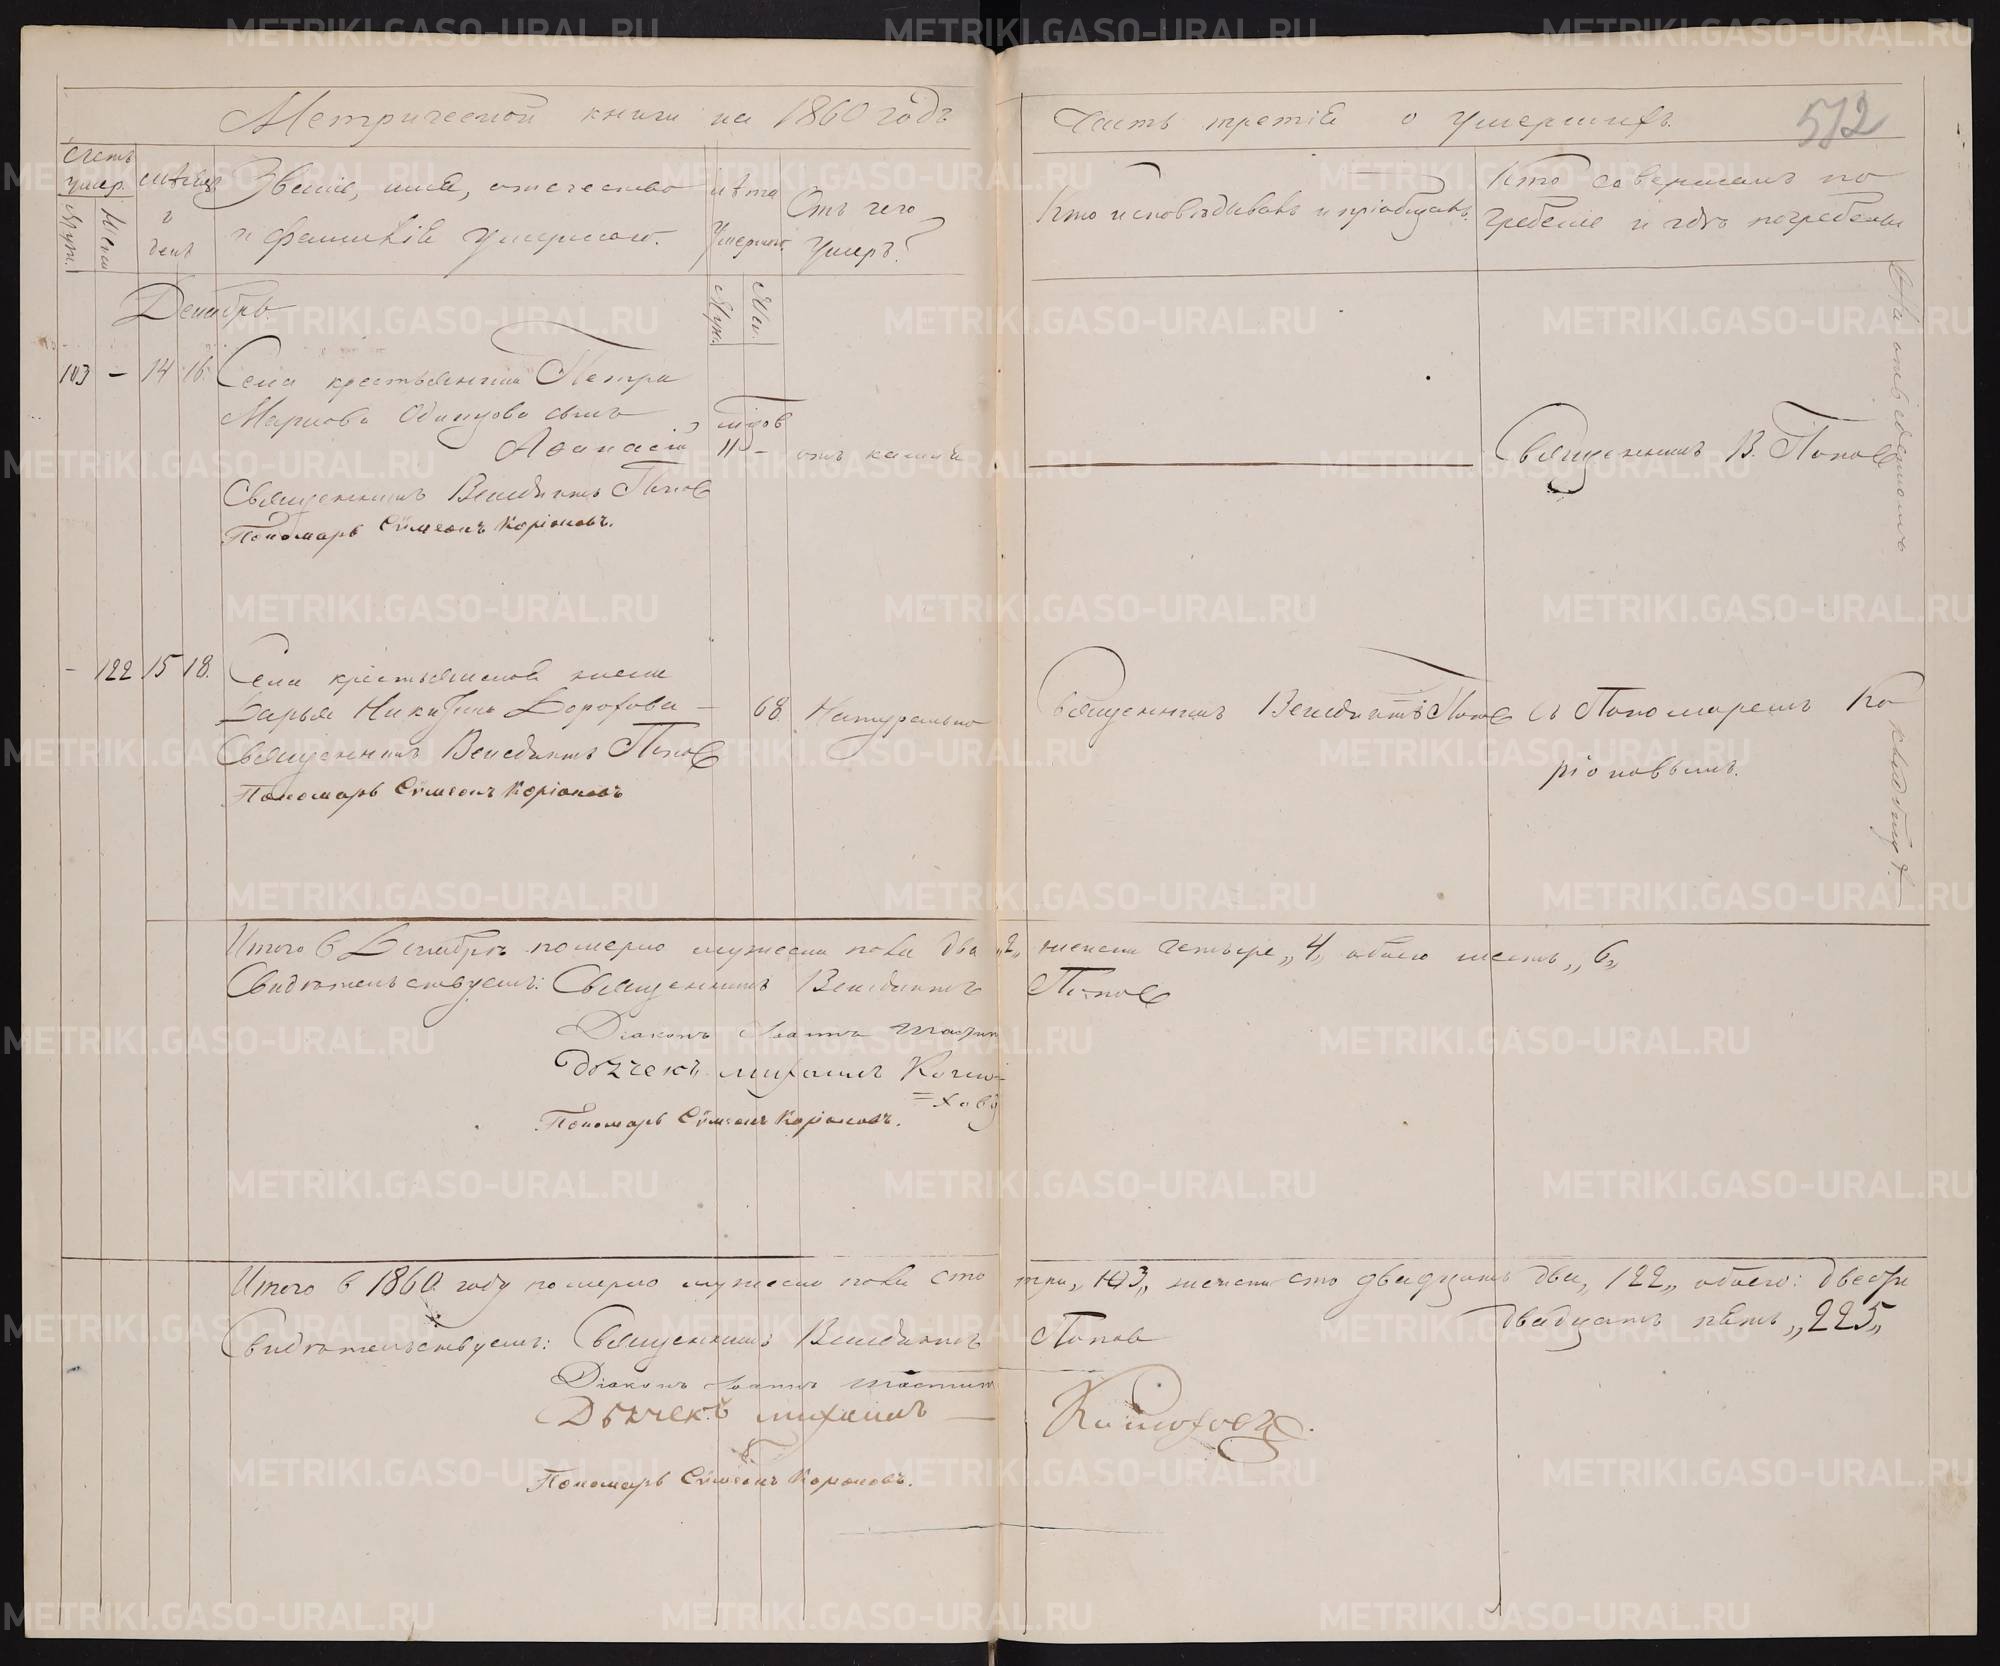 Метрической книги на 1860 годъ
Часть третія о умершихъ.
512
Счетъ умер.
Муж.
Жен
мѣсяцъ и день
Званіе, имя, отчество
и фамилія умершаго.
Лѣта
Умершаго.
Муж.
Жен.
Отъ чего
умеръ?
Кто исповѣдывалъ и пріобщалъ.
Кто совершалъ по
гребеніе и гдѣ погребены
Декабрь.
103 – 14 16. Села крестьянина Петра
Маркова Одинцова сынъ
Аѳанасій
11 – отъ кашля
Священникъ В. Попов
Священникъ Венедиктъ Попов
Пономарь Сѵмеонъ Коріоновъ.
– 122 15 18. Села крестьянская жена
Дарья Никитина Дорофова – 68. Натурально
Священникъ Венедиктъ Попов съ Пономаремъ Ко
ріоновымъ.
Священникъ Венедиктъ Попов
Пономарь Сѵмеонъ Коріоновъ
На отведенномъ кладбищѣ.
Итого в Декабрѣ померло мужеска пола два „2„ женска четыре „4„ обоего шесть „6„
Свидѣтельствуемъ: Священникъ Венедиктъ Попов
Діаконъ Іоаннъ
Дьячекъ Михаилъ
Пономарь Сѵмеонъ Коріоновъ.
Итого в 1860 году померло мужеска пола сто три „103„ женска сто двадцать два „122„ обоего: двести
двадцать пять „225„
Свидѣтельствуемъ: Священникъ Венедиктъ Попов
Діаконъ Іоаннъ
Дьячекъ Михаилъ
Пономарь Сѵмеонъ Коріоновъ.
METRIKI.GASO-URAL.RU